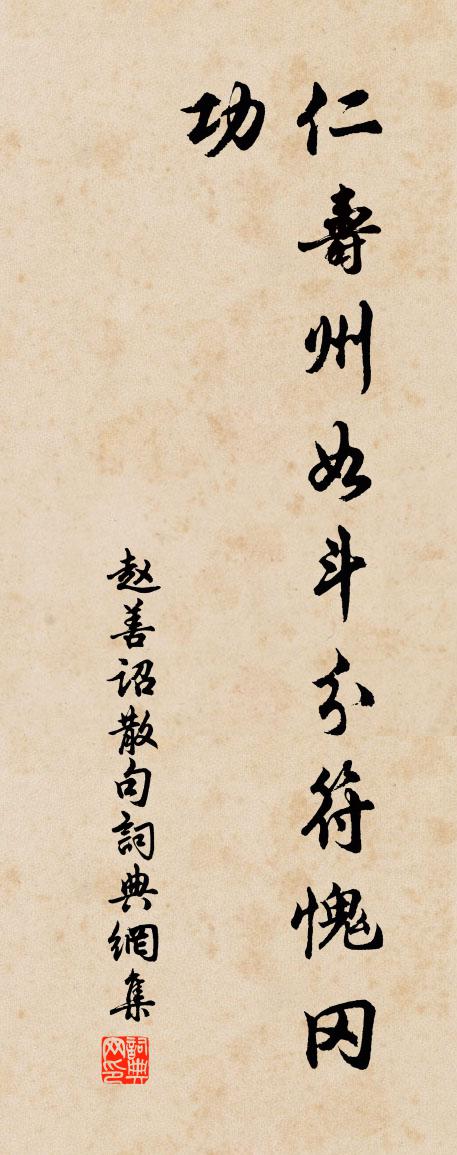 仁壽州如斗分符愧罔
功
赵善诏散句詞典網集
詞典
网印